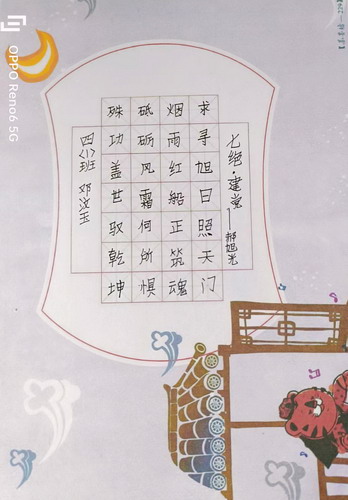 七绝·建党——
求寻旭日照天门
烟雨红船正筑魂
砥砺风霜何所惧
殊功盖世驭乾坤
四(1)班 邓汝玉
OPPO Reno6 5G